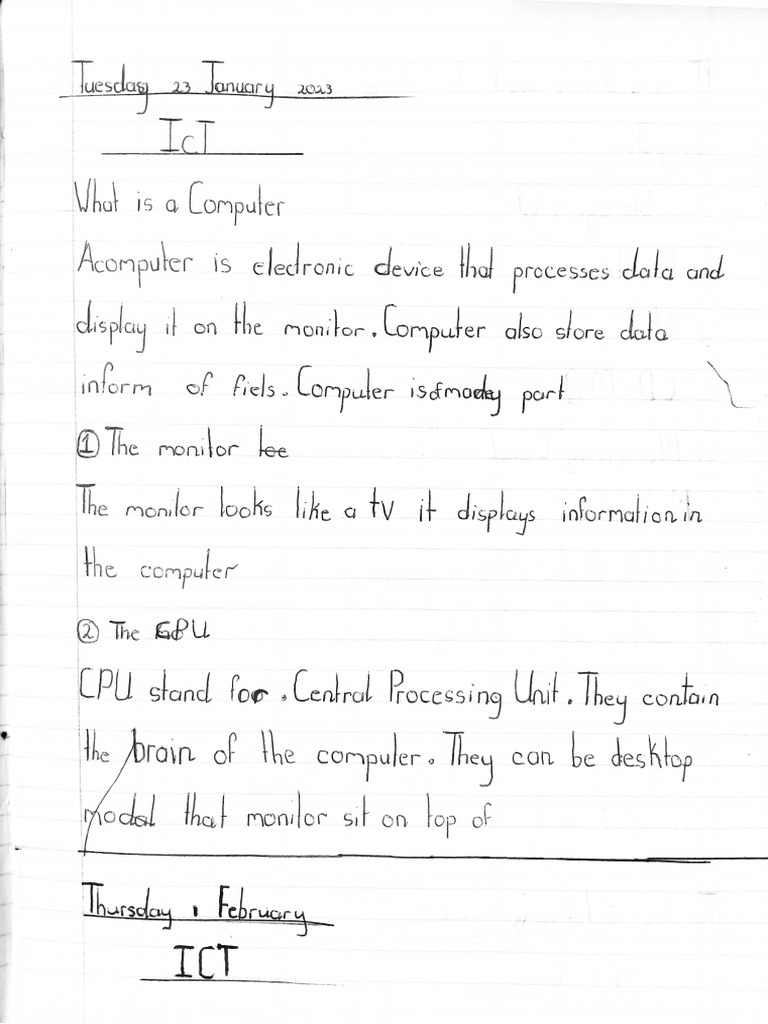 Tuesday 23 January 2023
IcT
What is a Computer
Acomputer is electronic device that processes data and
display it on the monitor. Computer also store data
inform of fiels. Computer is part
① The monitor
The monitor looks like a tv it displays information in
the computer
② The CPU
CPU stand for . Central Processing Unit. They contain
the brain of the computer. They can be desktop
modal that monitor sit on top of
Thursday 1 February
ICT